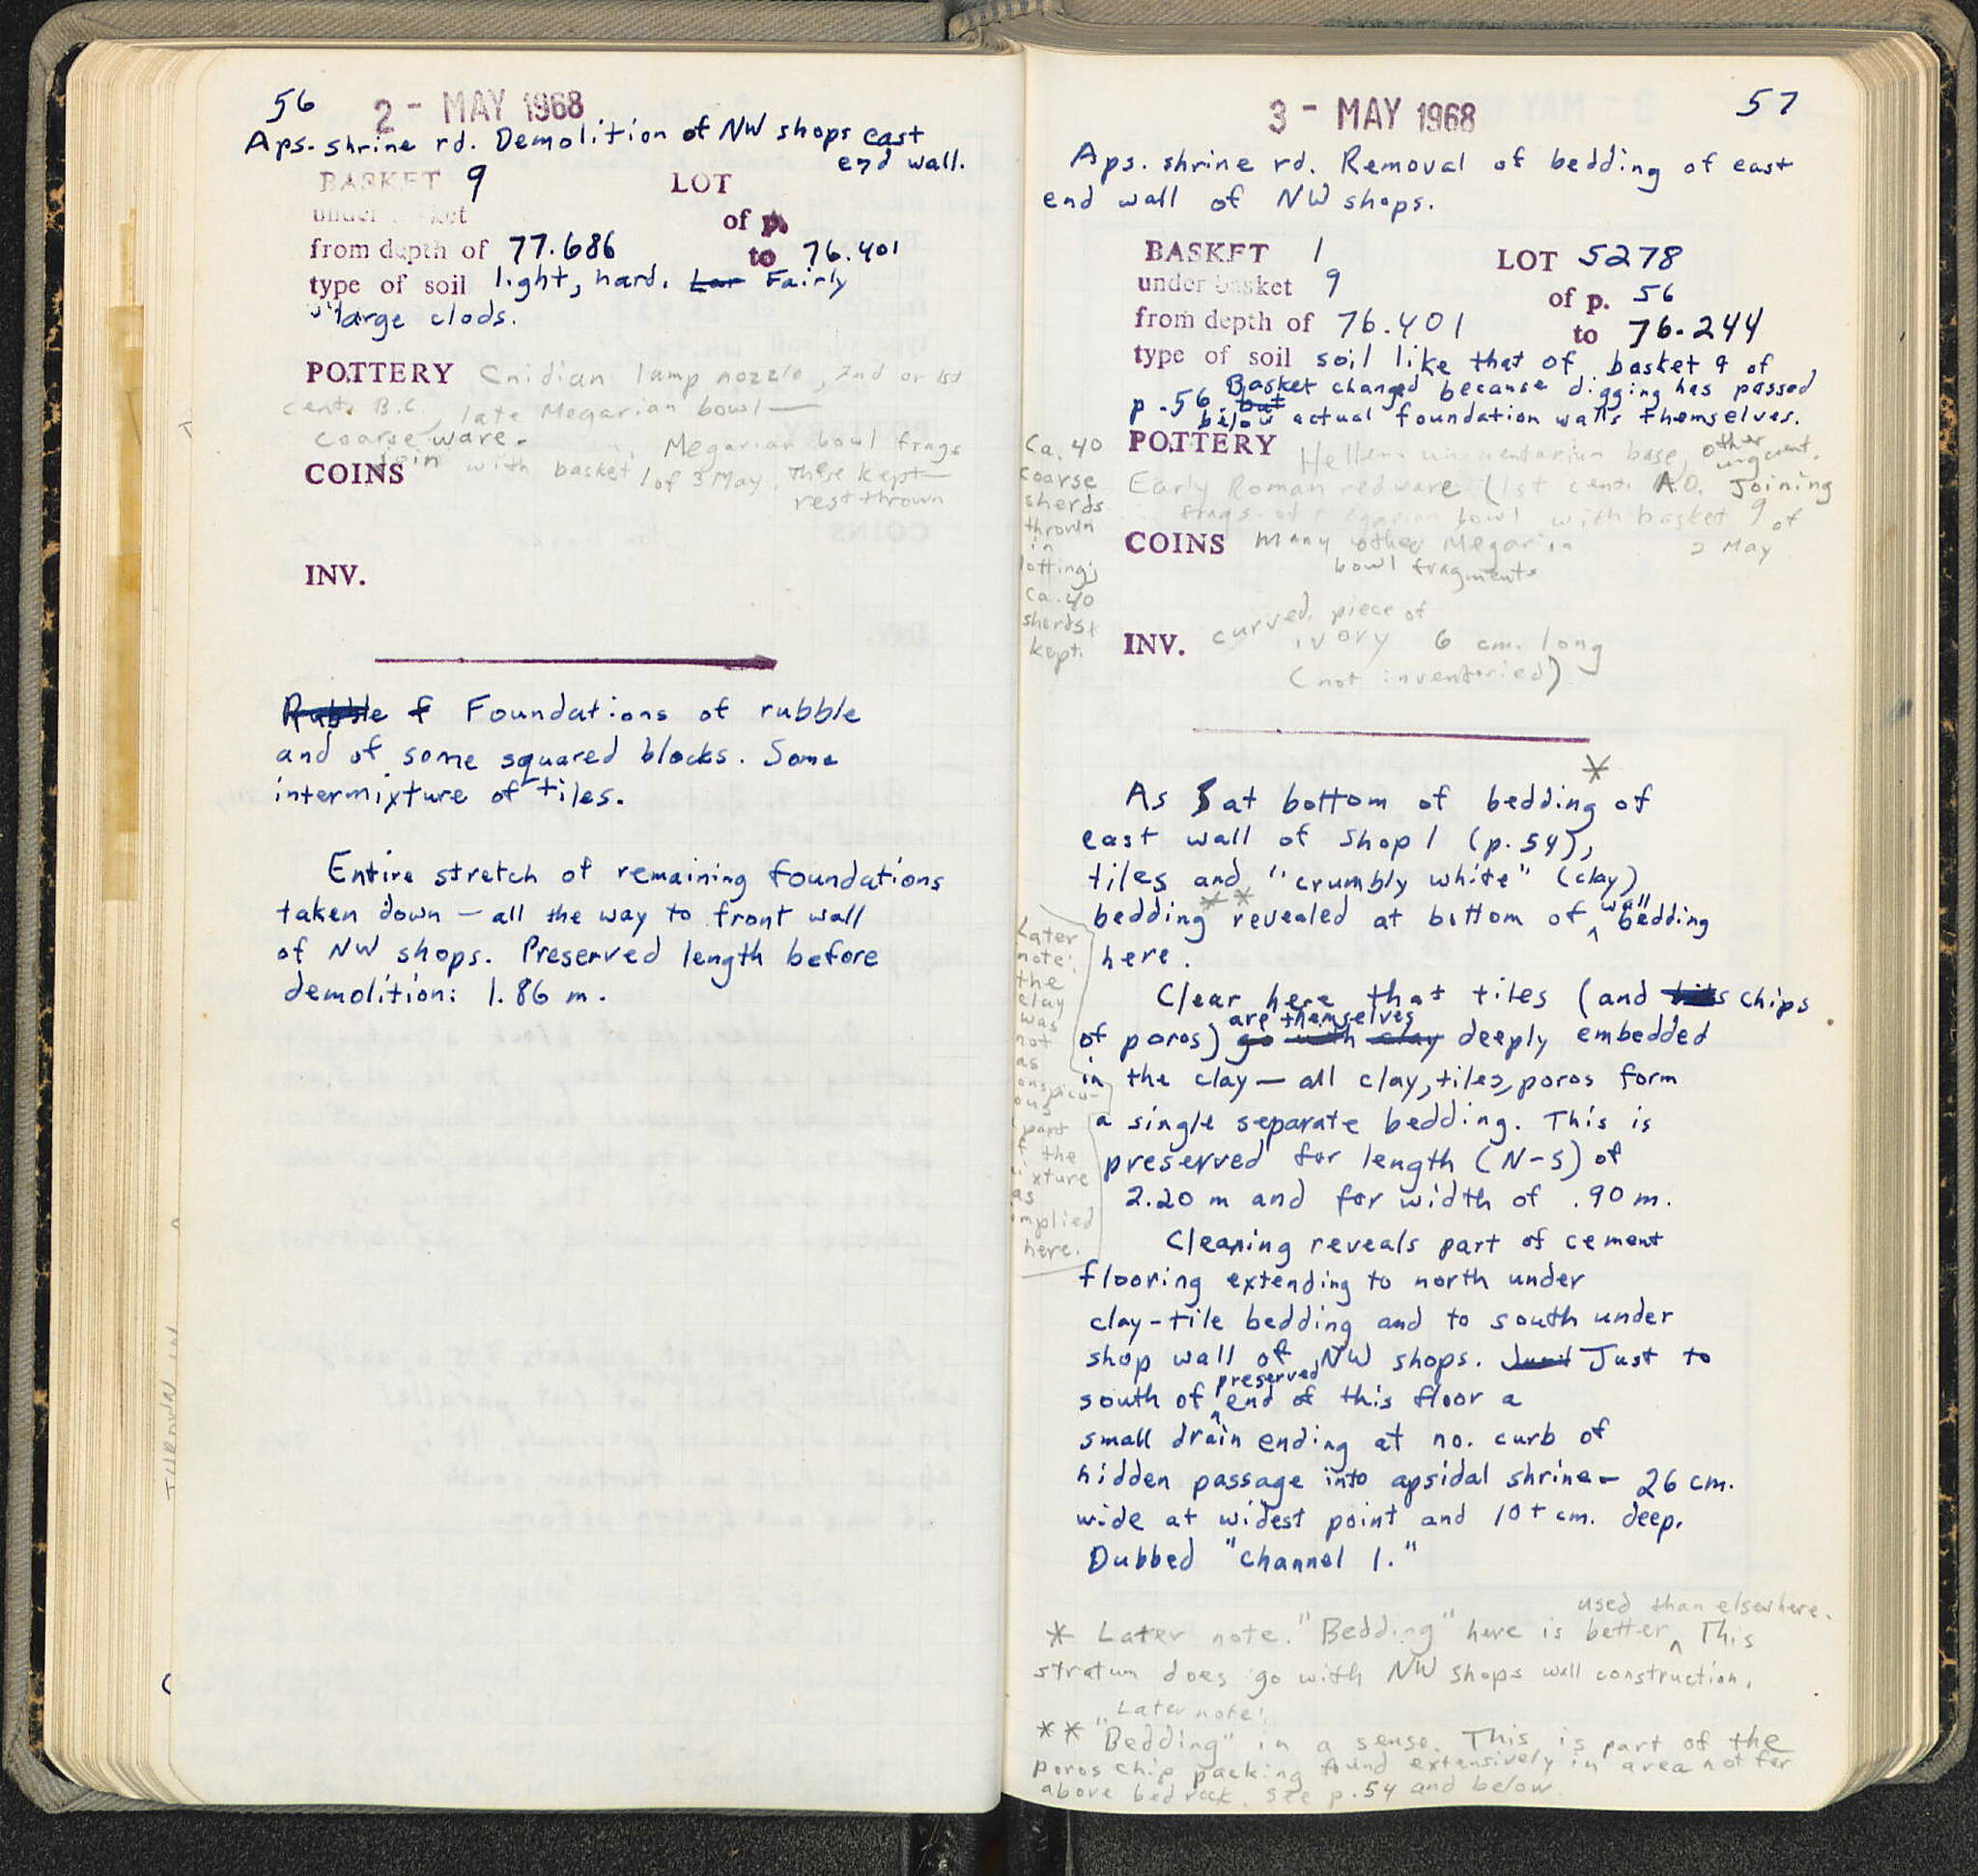 56
2 - MAY 1968
Aps. shrine rd. Demolition of NW shops east
end wall.
BASKET 9 LOT
under basket of p.
from depth of 77.686 to 76.401
type of soil light, hard. Lar Fairly
large clods.
POTTERY Cnidian lamp nozzle, 2nd or 1st
cent. B.C., late Megarian bowl —
coarse ware. Megarian bowl frags
join with basket 1 of 3 May. These kept —
rest thrown
COINS
INV.
Rubble f Foundations of rubble
and of some squared blocks. Some
intermixture of tiles.
Entire stretch of remaining foundations
taken down — all the way to front wall
of NW shops. Preserved length before
demolition: 1.86 m.
57
3 - MAY 1968
Aps. shrine rd. Removal of bedding of east
end wall of NW shops.
BASKET 1 LOT 5278
under basket 9 of p. 56
from depth of 76.401 to 76.244
type of soil soil like that of basket 9 of
p. 56 but Basket changed because digging has passed
below actual foundation walls themselves.
POTTERY Hellen. unguentarium base, other unguent.
Early Roman redware (1st cent. A.D. Joining
frags. of Megarian bowl with basket 9 of
2 May
many other Megarian
bowl fragments
COINS
INV. curved piece of
ivory 6 cm. long
(not inventoried)
Ca. 40
coarse
sherds
thrown
in
lotting;
ca. 40
sherds
kept.
*
As at bottom of bedding of
east wall of shop 1 (p. 54),
tiles and "crumbly white" (clay)
bedding ** revealed at bottom of wall bedding
here.
Clear here that tiles (and bits chips
of poros) go with clay are themselves deeply embedded
in the clay — all clay, tiles, poros form
a single separate bedding. This is
preserved for length (N-S) of
2.20 m and for width of .90 m.
Cleaning reveals part of cement
flooring extending to north under
clay-tile bedding and to south under
shop wall of NW shops. Just to
south of preserved end of this floor a
small drain ending at no. curb of
hidden passage into apsidal shrine — 26 cm.
wide at widest point and 10+ cm. deep.
Dubbed "channel 1."
Later
note:
the
clay
was
not
as
conspicu-
ous
part
of the
mixture
as
implied
here.
* Later note. "Bedding" here is better used than elsewhere. This
stratum does go with NW shops wall construction.
Later note:
** "Bedding" in a sense. This is part of the
poros chip packing found extensively in area not far
above bedrock. See p. 54 and below.